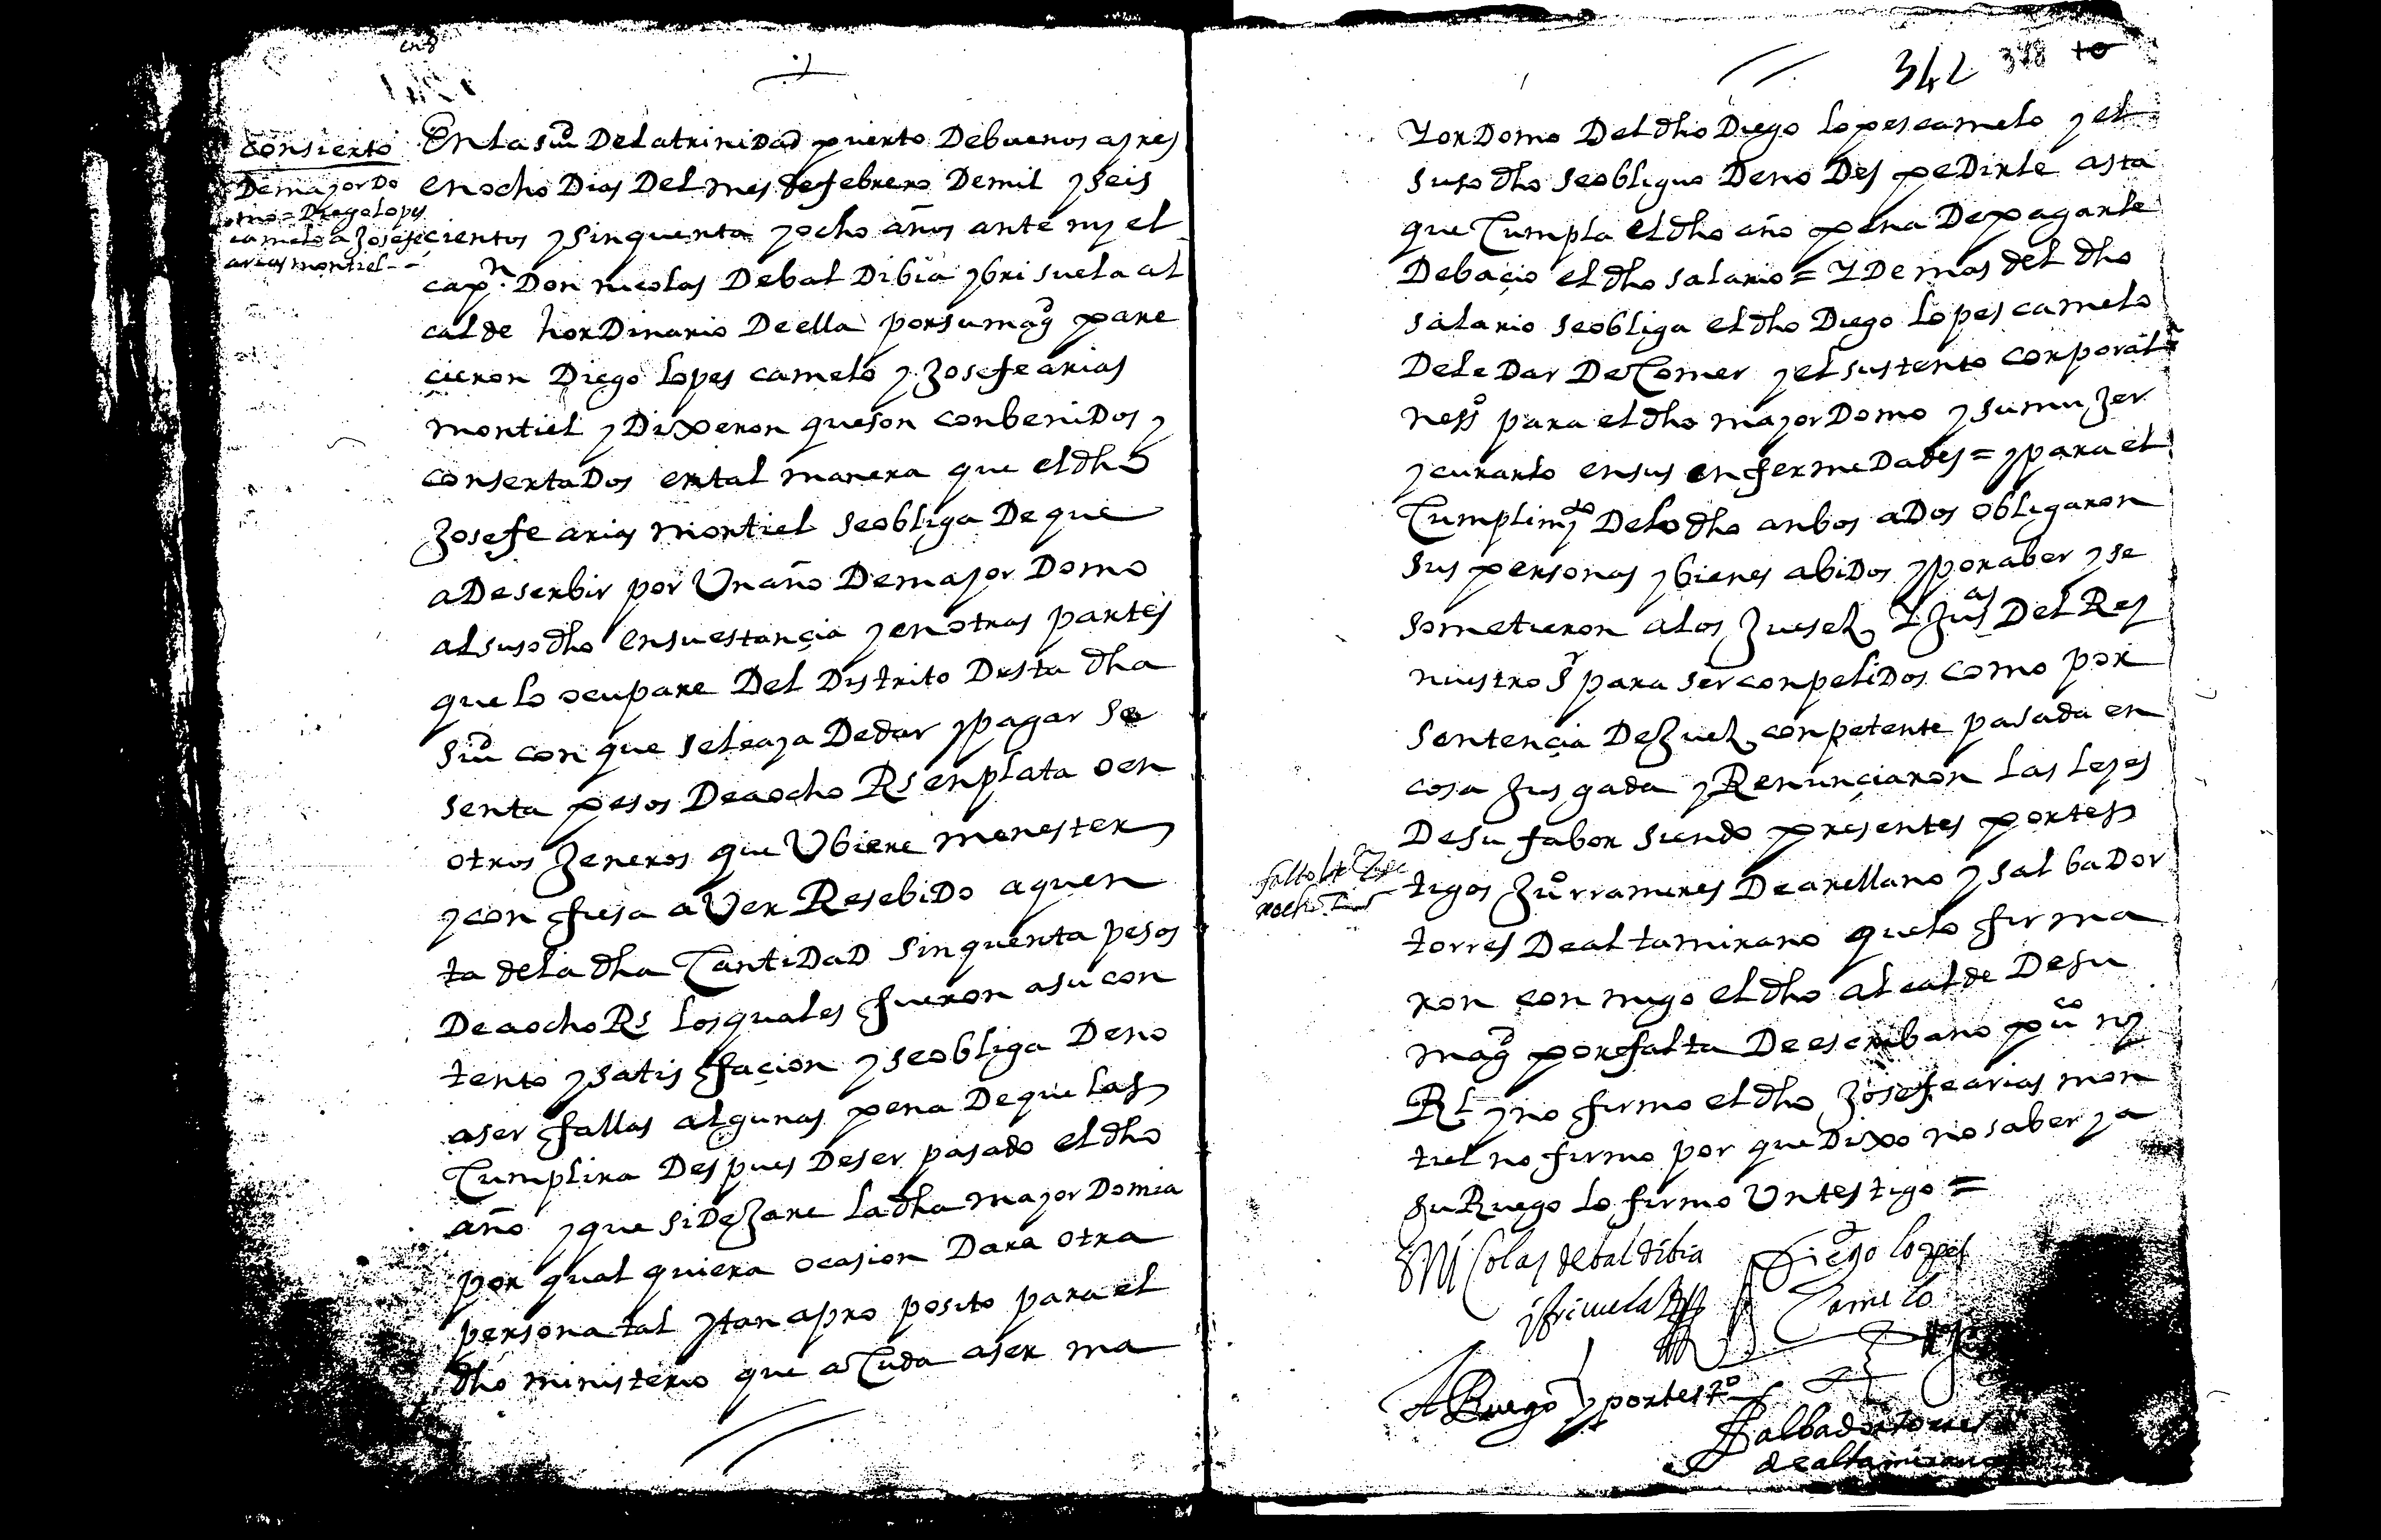 en 8
consierto
De mayorDo
mo = Diego Lopes
camelo a Josefe
arias montiel --
En la siu.d De la trinidad puerto De buenos ayres
en ocho Dias Del mes de febrero De mil y seis
cientos y sinquenta y ocho años ante my el
cap.n Don nicolas De bal Dibia y bri suela al
calde horDinario De ella por su mag.d pare
cieron Diego Lopes camelo y Josefe arias
montiel y Dixeron que son conbeniDos y
consertaDos en tal manera que el dho
Josefe arias montiel se obliga De que
a De serbir por Un año De mayor Domo
al suso dho en su estançia y en otras partes
que lo ocupare Del Distrito Desta dha
siu.d con que se le aya De dar y pagar se
senta pesos De a ocho Rs en plata o en
otros Jeneros que Ubiere menester
y confiesa aVer ResebiDo a quen
ta de la dha CantiDaD sinquenta pesos
De a ocho Rs los quales fueron a su con
tento y satisfaçion y se obliga De no
aser fallas algunas pena De que las
Cumplira Despues De ser pasado el dho
año y que si DeJare la dha mayor Domia
por qual quiera ocasion Dara otra
persona tal y tan apro posito para el
dho ministerio que a Cuda a ser ma
342 318 10
Yor Domo Del dho Diego Lopes camelo y el
suso dho se obliguo De no Des peDirle asta
que Cumpla el dho año pena De pagarle
De baçio el dho salario = Y De mas del dho
salario se obliga el dho Diego Lopes camelo
De le Dar De Comer y el sustento corporal
ness.o para el dho mayor Domo y su muJer
y curarlo en sus enfermeDades = y para el
Cumplimy.to De lo dho anbos a Dos obligaron
sus personas y bienes abiDos y por aber y se
sometieron a los Jueses Y Jus.as Del Rey
nuestro S.r para ser conpeliDos como por
sentençia De Juez conpetente pasada en
cosa Jusgada y Renunçiaron las leyes
De su fabor siendo presentes por tes
tigos Ju.o rramires De arellano y salbaDor
torres De altamirano que lo firma
ron con migo el dho alcalde De su
mag.d por falta De escribano pu.co ny
Rl y no firmo el dho Josefe arias mon
tiel no firmo por que Dixo no saber y a
su Ruego lo firmo Un testigo =
Ni Colas de baldibia
y briçuela
Diego lopes
Camelo
A Ruego y por test.o
Salbador torres
de altamirano